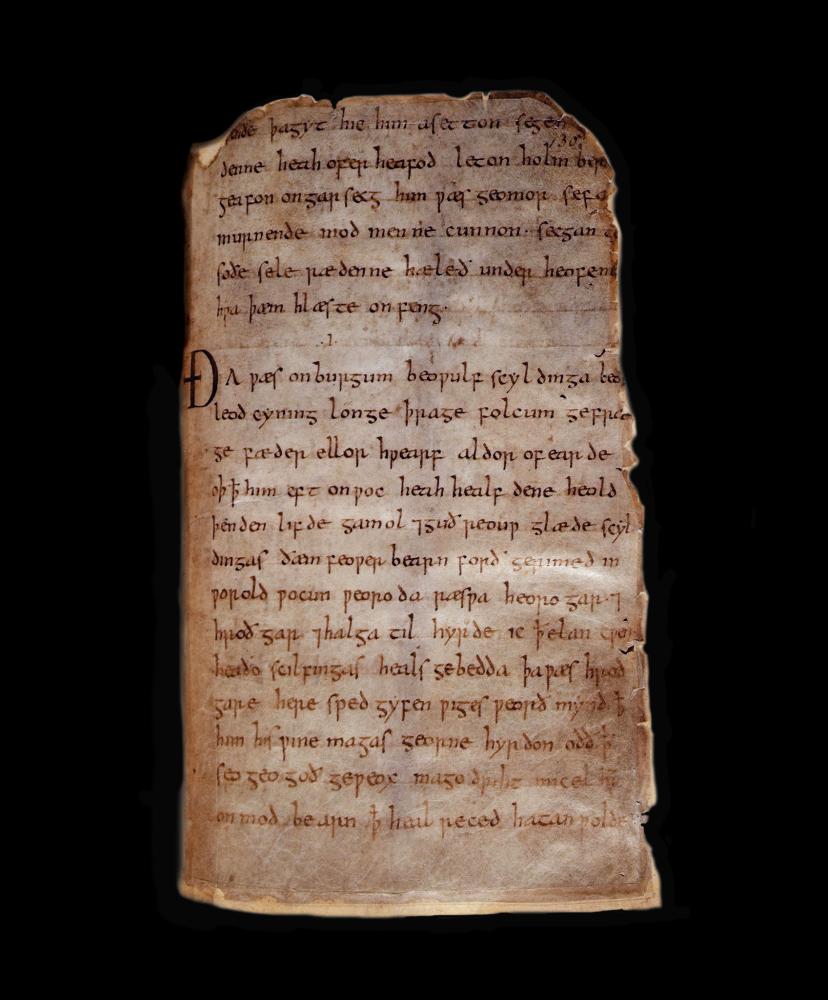 þagyt hie him asetton segen
130
denne heah ofer heafod leton holm
geafon ongarsecg him ƿæs geomor sefa
murnende mod men ne cunnon· secgan
soðe sele rædenne hæleð under
hƿa þæm hlæste onfeng·
ÐA ƿæs onburgum beoƿulf scyldinga
leod cyning longe þrage folcum gefræ
ge fæder ellor hƿearf aldor ofearde
oþ ꝥ him eft onƿoc heah healfdene heold
þenden lifde gamol ⁊guð reouƿ glæde scyl
dingas ðæm feoƿer bearn forð gerimed in
ƿorold ƿocun ƿeoroda ræsƿa heorogar·⁊
hroðgar ⁊halga til hyrde ic ꝥelan cƿen
heaðo scilfingas heals gebedda þaƿæs hroð
gare here sped gyfen ƿiges ƿeorð mynd ꝥ
him his ƿine magas georne hyrdon oðð ꝥ
seo geogoð geƿeox mago driht micel
onmod bearn ꝥ heal reced hatan ƿolde